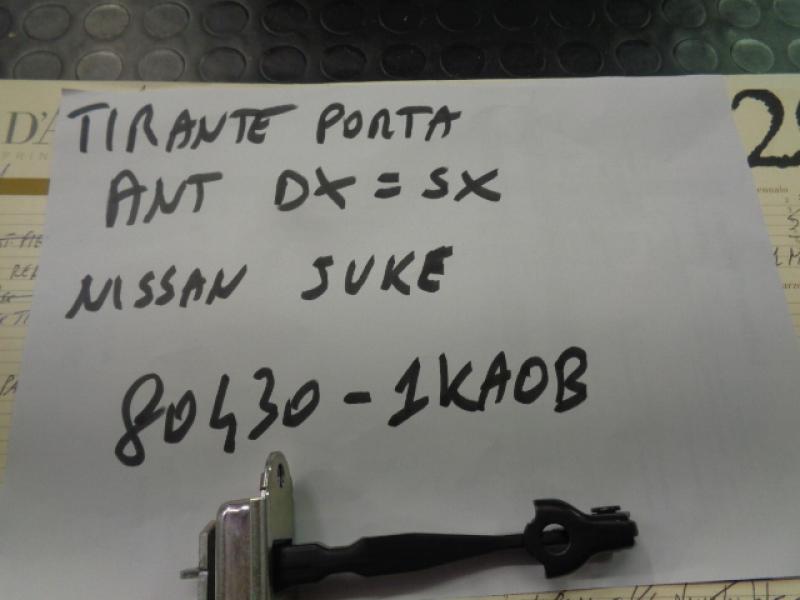 TIRANTE PORTA
ANT DX = SX
NISSAN JUKE
80430-1KA0B
D'A
PRIN
ennaio